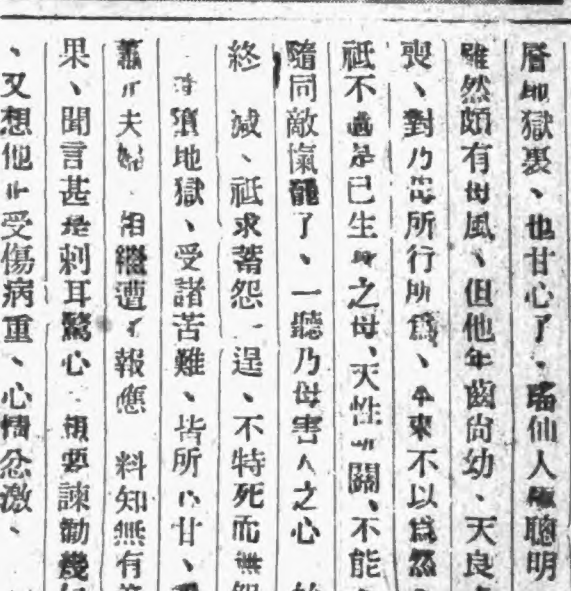 層地獄裏、也甘心了、瑤仙人極聰明
雖然頗有母風、但他年齒尚幼、天良
喪、對乃母所行所爲、本來不以爲然
祇不過是已生身之母、天性所關、不能
隨同敵愾罷了、一聽乃母害人之心
終 滅、祇求蓄怨一逞、不特死而無怨
墮地獄、受諸苦難、皆所心甘、
蕭元夫婦 相繼遭了報應 料知無有善
果、聞言甚是刺耳驚心 想要諫勸幾
、又想他此受傷病重、心情忿激、